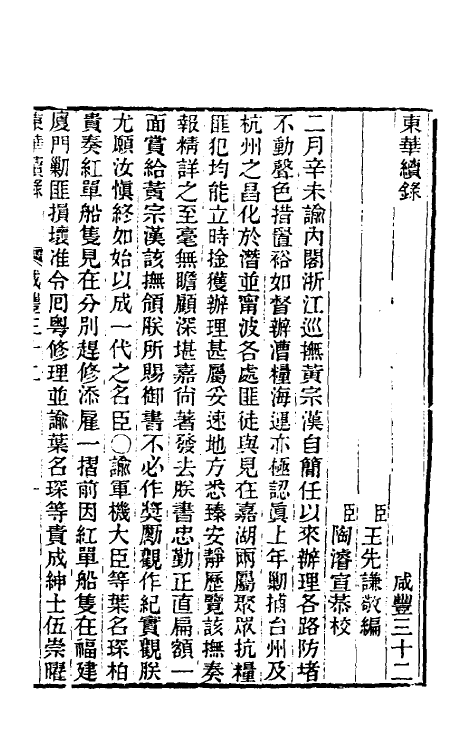 東華續錄
咸豐三十二
臣王先謙敬編
臣陶濬宣恭校
二月辛未諭內閣浙江巡撫黃宗漢自簡任以來辦理各路防堵
不動聲色措置裕如督辦漕糧海運亦極認眞上年勦捕台州及
杭州之昌化於潛並甯波各處匪徒與見在嘉湖兩屬聚眾抗糧
匪犯均能立時捦獲辦理甚屬妥速地方悉臻安靜歷覽該撫奏
報精詳之至毫無瞻顧深堪嘉尙著發去朕書忠勤正直扁額一
面賞給黃宗漢該撫領朕所賜御書不必作獎勵觀作紀實觀朕
尤願汝愼終如始以成一代之名臣〇諭軍機大臣等葉名琛柏
貴奏紅單船隻見在分別趕修添雇一摺前因紅單船隻在福建
廈門勦匪損壞准令囘粵修理並諭葉名琛等責成紳士伍崇曜
東華續錄
咸豐三十二
一